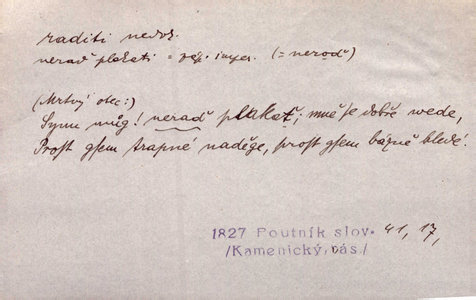 raditi nedok.
nerad plakati = záp. imper. (= neroď)
(Mrtvý otec:)
Synu můg! nerad plakať; mně se dobře wede,
Prost gsem trapné naděge, prost gsem bázně bledé.
1827 Poutník slov. 41, 17,
/Kamenický, bás./